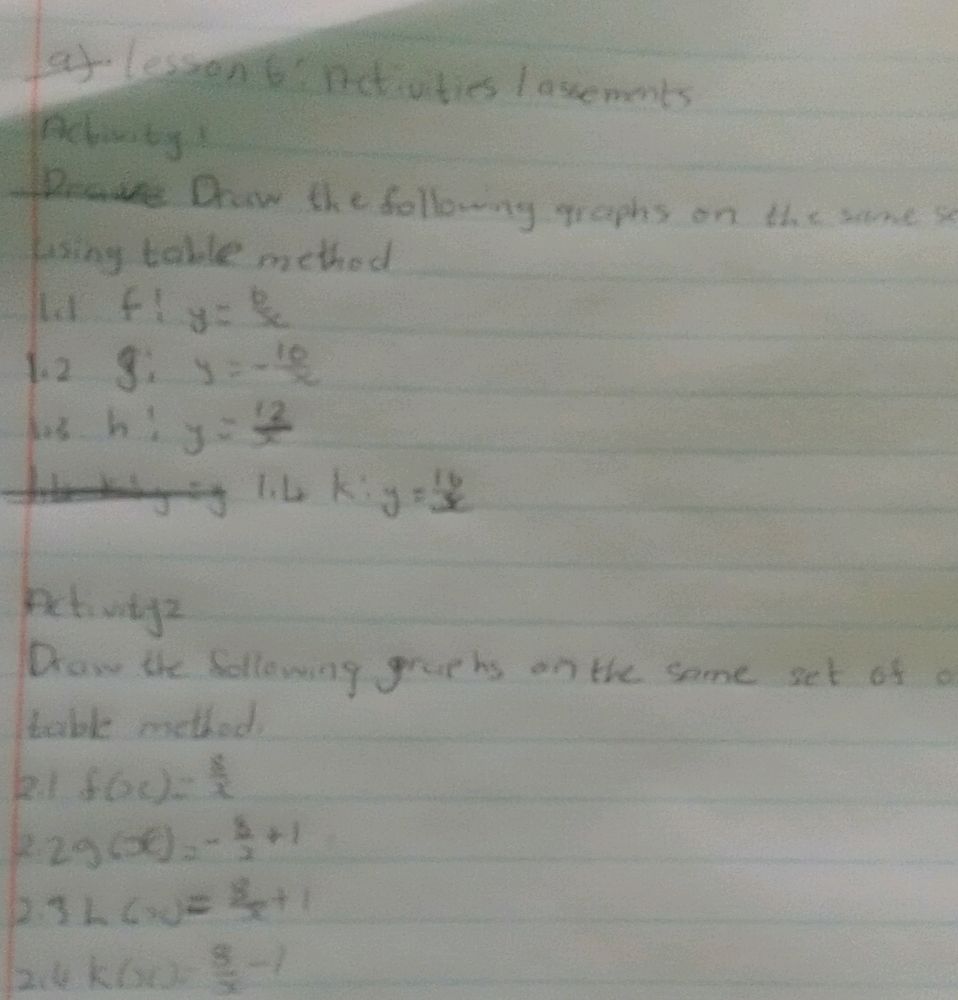 a) lesson 6: Activities / assements
Activity 1
Draw the following graphs on the same se
using table method
1.1 f: y = 6/x
1.2 g: y = -10/x
1.3 h: y = 12/x
1.4 k: y = 16/x
Activity 2
Draw the following graphs on the same set of a
table method.
2.1 f(x) = 8/x
2.2 g(x) = -8/x + 1
2.3 h(x) = 8/x + 1
2.4 k(x) = 8/x - 1